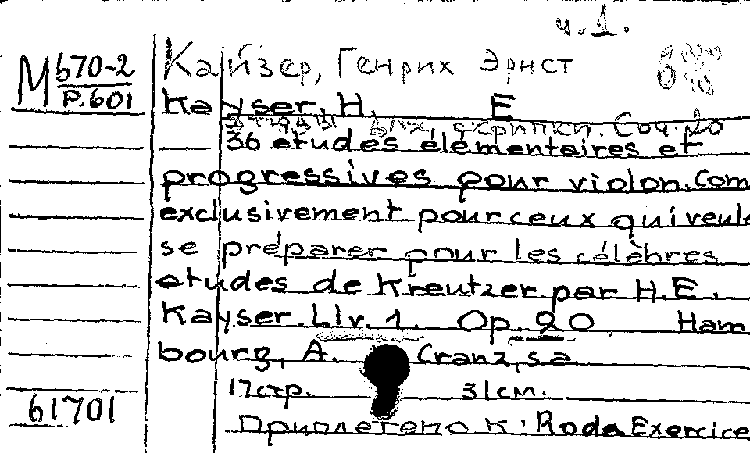 ч.1.
М 670-2
Р.601
Кайзер, Генрих Эрнст
Kayser, H. E
скрипки. Соч. 20
36 etudes élémentaires et
progressives pour violon. Com
exclusivement pour ceux qui veule
se préparer pour les célèbres
etudes de Kreutzer par H.E.
Kayser. Llv. 1. Op. 20 Ham
bourg, A. Cranz, s.a
17стр. 31см.
61701
Приплетено к: Roda Exercice